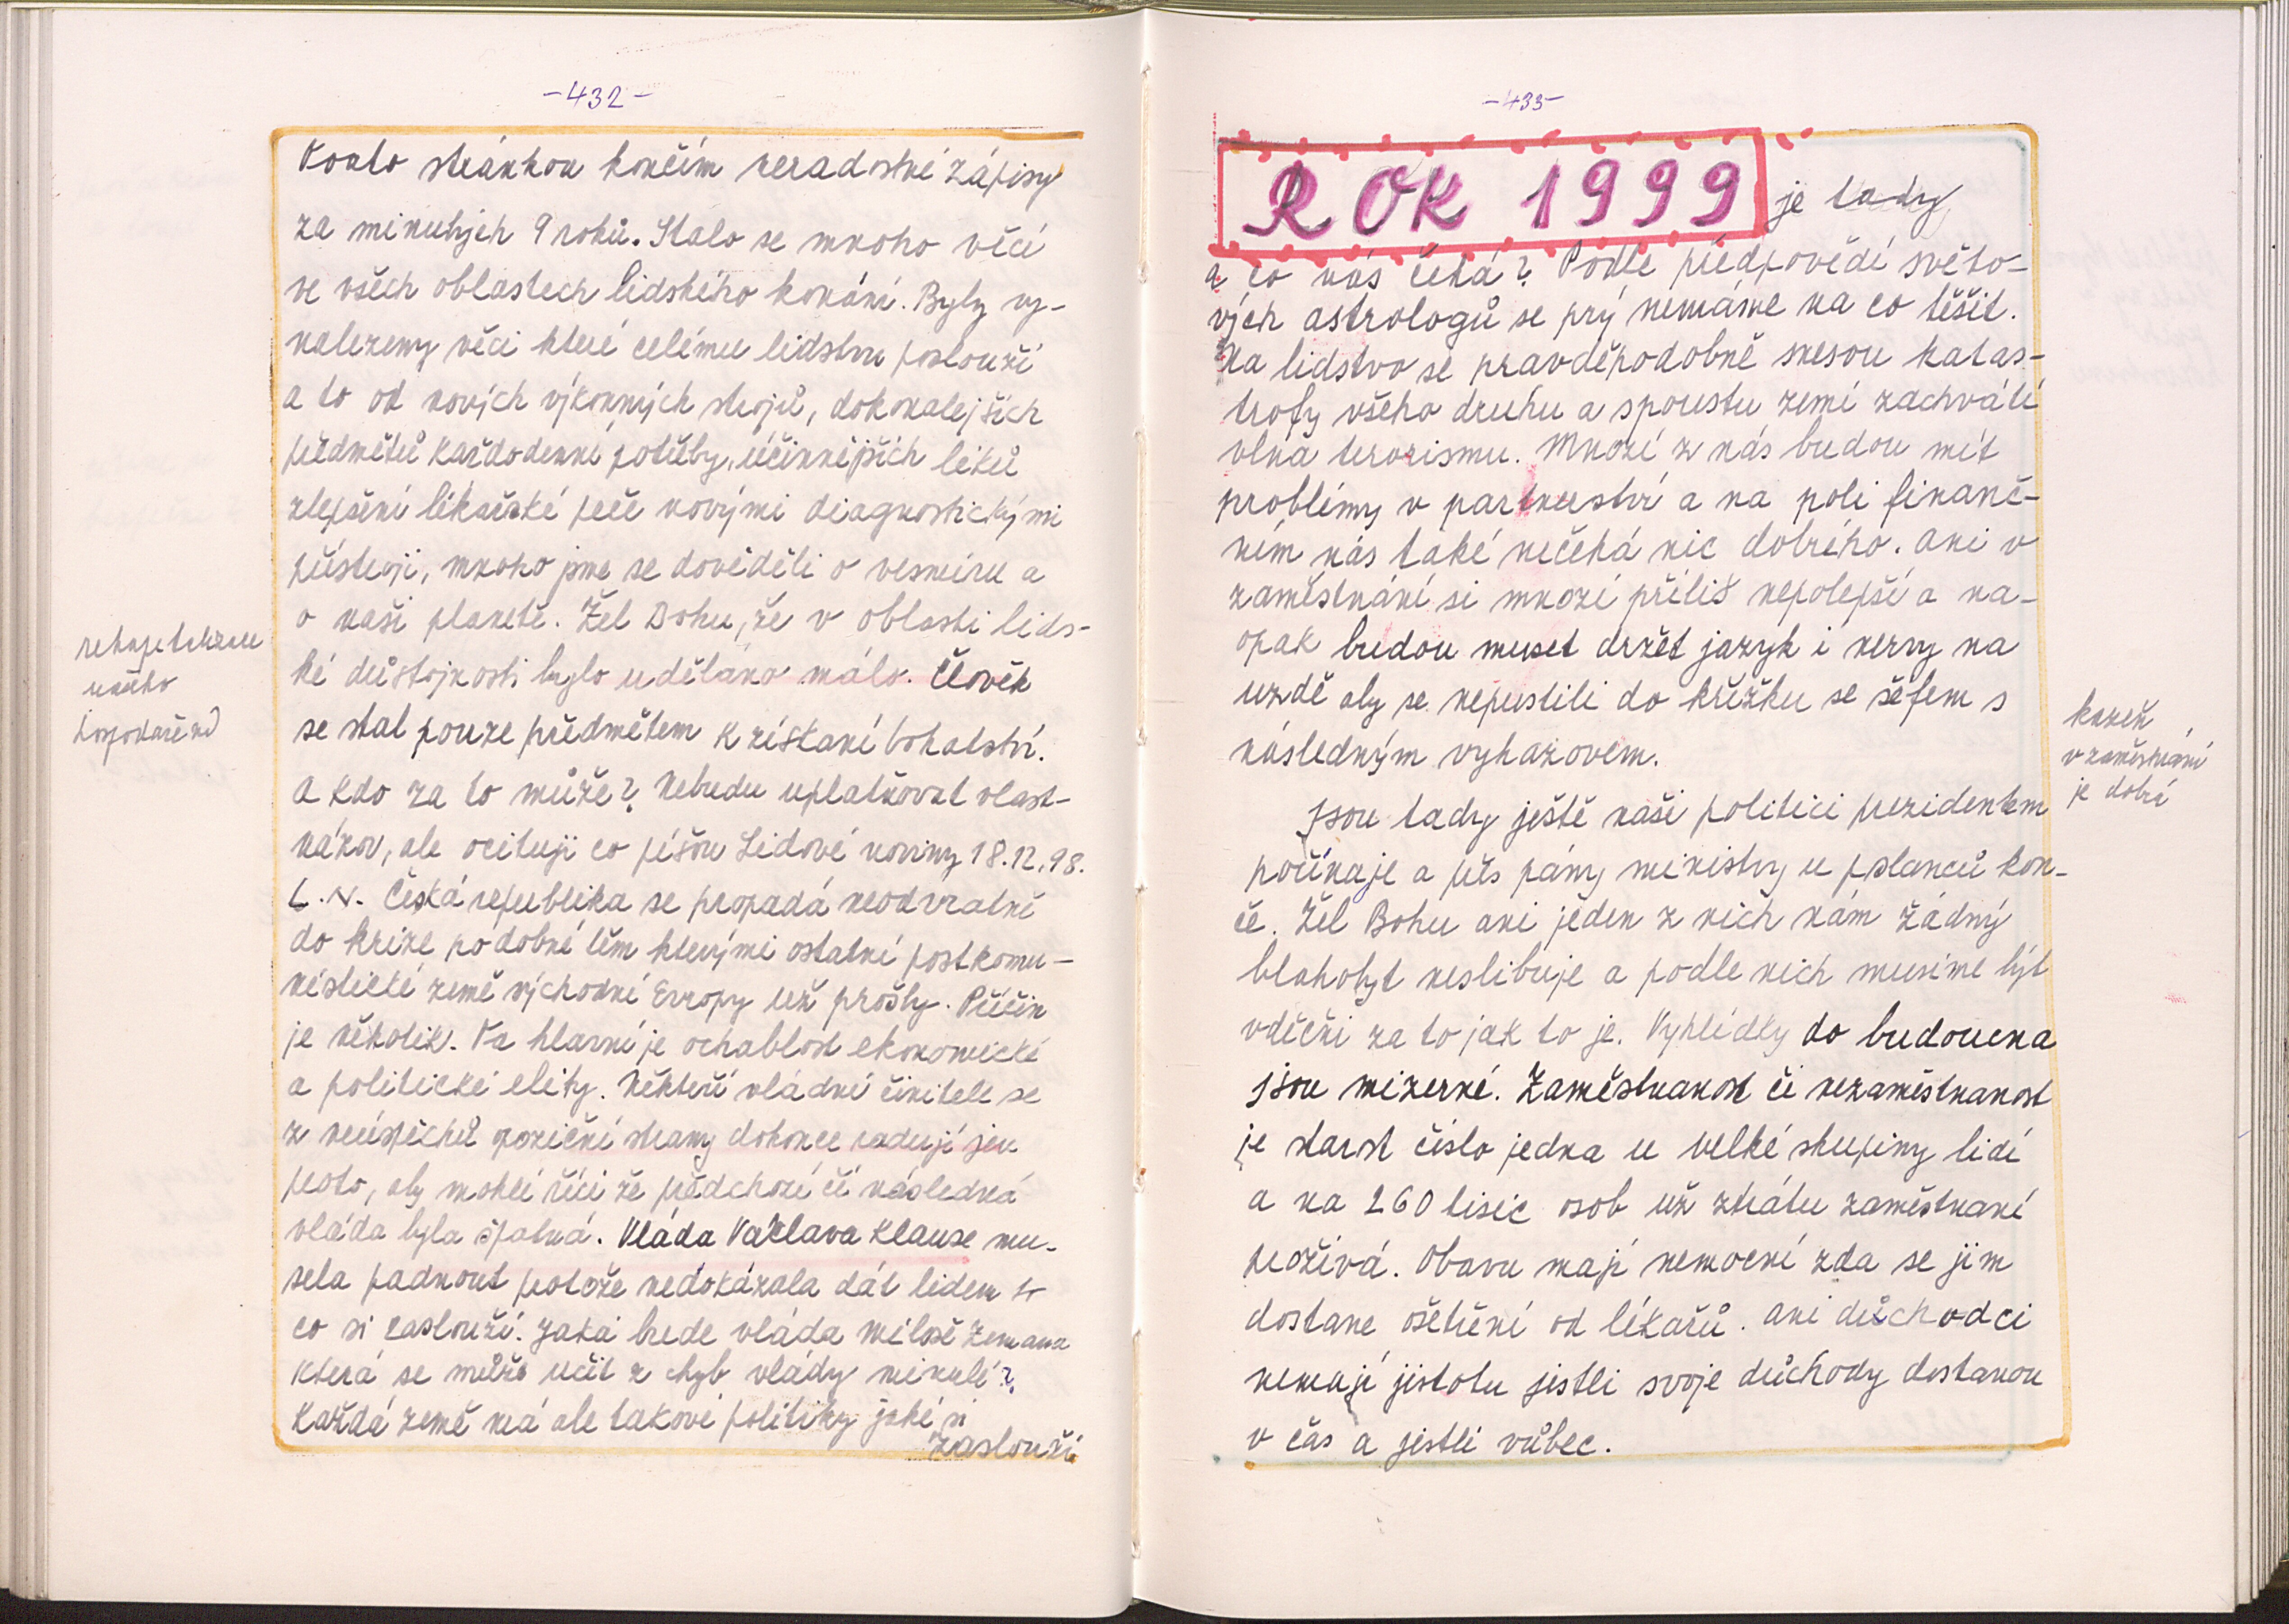 -432-
Touto stránkou končím neradostné zápisy
za minulých 9 roků. Stalo se mnoho věcí
ve všech oblastech lidského konání. Byly vy-
nalezeny věci které celému lidstvu poslouží
a to od nových výkonných strojů, dokonalejších
předmětů každodenní potřeby, účinnějších léků
zlepšení lékařské peče novými diagnostickými
přístroji, mnoho jsme se dověděli o vesmíru a
o naši planetě. Žel Bohu, že v oblasti lids-
ké důstojnosti bylo uděláno málo. Člověk
se stal pouze předmětem k získaní bohatství.
A kdo za to může? Nebudu uplatňovat vlast-
názor, ale ocituji co píšou Lidové noviny 18.12.98.
L.N. Česká republika se propadá neodvratně
do krize podobné těm kterými ostatní postkomu-
nistické země východní Evropy už prošly. Příčin
je několik. Ta hlavní je ochablost ekonomické
a politické elity. Někteří vládní činitelé se
z neúspěchů opoziční strany dokonce radují jen
proto, aby mohli říci že předchozí či následná
vláda byla špatná. Vláda Václava Klause mu-
sela padnout protože nedokázala dát lidem to
co si zaslouží. Jaká bude vláda Miloše Zemana
která se může učit z chyb vlády minulé?
Každá země má ale takové politiky jaké si
zaslouží
našeho
hospodaření
-433-
ROK 1999 je tady
a co nás čeká? Podle předpovědí světo-
vých astrologů se prý nemáme na co těšit.
Na lidstvo se pravděpodobně snesou katas-
trofy všeho druhu a spoustu zemí zachvátí
vlna terorismu. Mnozí z nás budou mít
problémy v partnerství a na poli finanč-
ním nás také nečeká nic dobrého. Ani v
zaměstnání si mnozí příliš nepolepší a na-
opak budou muset držet jazyk i nervy na
uzdě aby se nepustili do křížku se šéfem s
následným vyhazovem.
Jsou tady ještě naši politici prezidentem
počínaje a přes pány ministry u poslanců kon-
če. Žel Bohu ani jeden z nich nám žádný
blahobyt neslibuje a podle nich musíme být
vděčni za to jak to je. Vyhlídky do budoucna
jsou mizerné. Zaměstnanost či nezaměstnanost
je starost číslo jedna u velké skupiny lidí
a na 260 tisíc osob už ztrátu zaměstnaní
prožívá. Obavu mají nemocní zda se jim
dostane ošetření od lékařů. Ani důchodci
nemají jistotu jestli svoje důchody dostanou
v čas a jestli vůbec.
kázeň
v zaměstnání
je dobrá